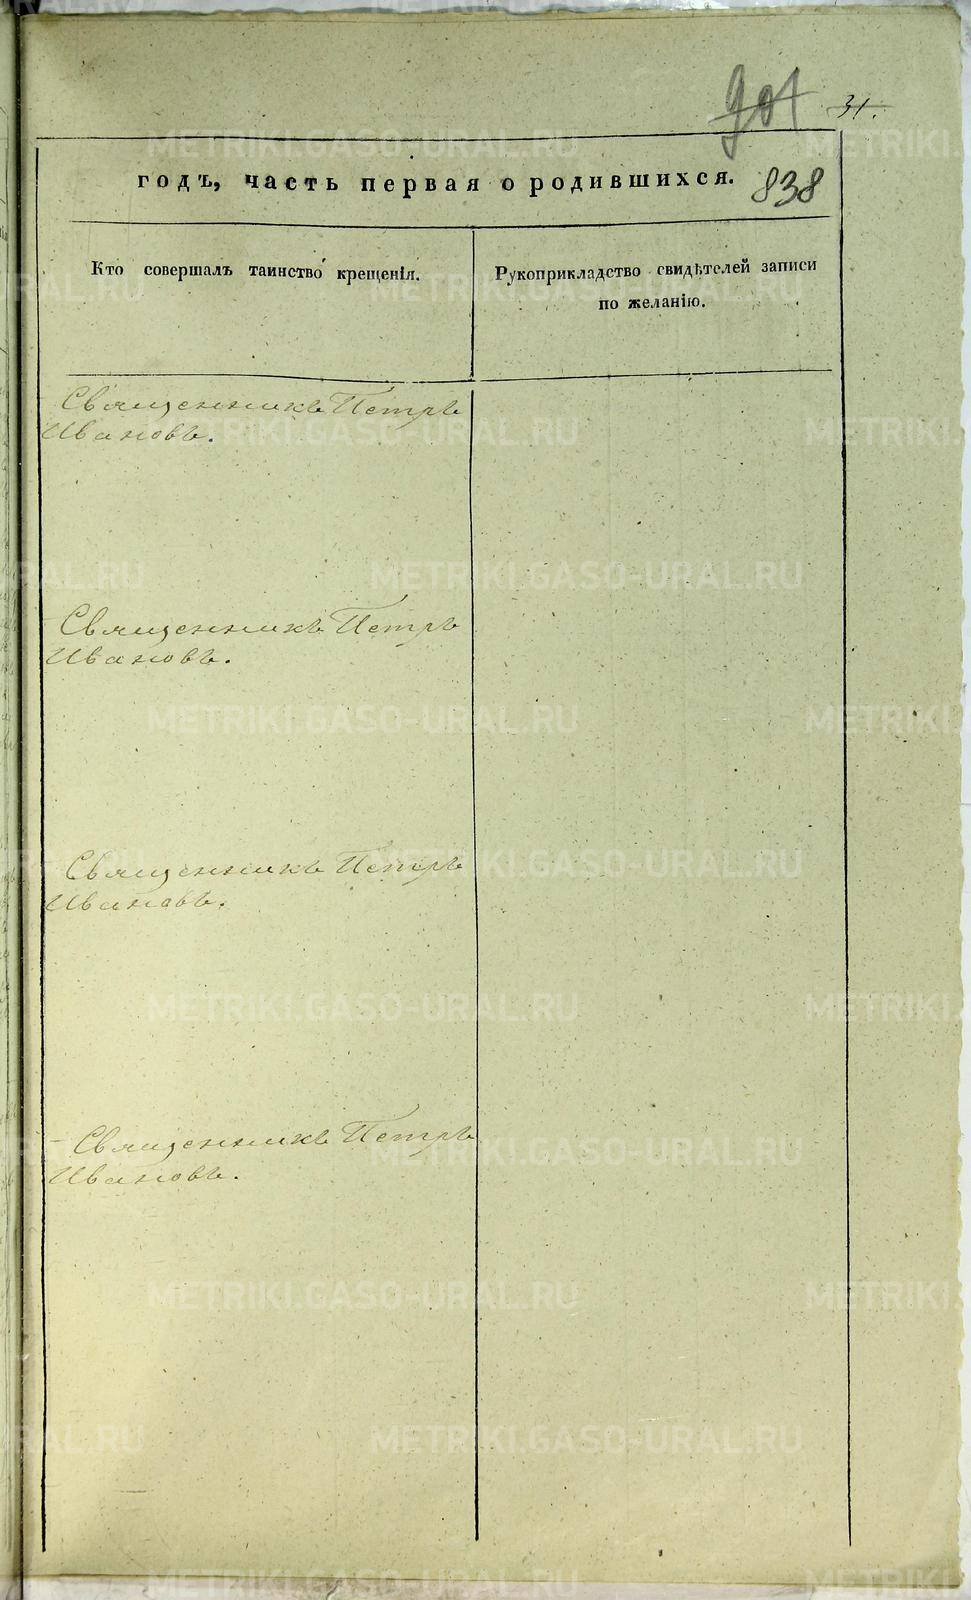 901 31.
годъ, часть первая о родившихся. 838
Кто совершалъ таинство крещенія.
Рукоприкладство свидѣтелей записи
по желанію.
Священникъ Петръ
Ивановъ.
Священникъ Петръ
Ивановъ.
Священникъ Петръ
Ивановъ.
Священникъ Петръ
Ивановъ.
METRIKI.GASO-URAL.RU